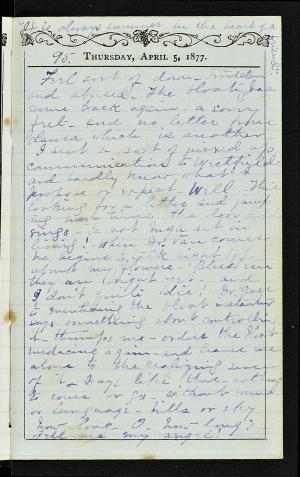 It is always summer in the heart of a friend.
95.
THURSDAY, APRIL 5, 1877.
Feel sort of down-trodden
and abused. The bloating has
come back again - a sorry
fret - and no letter from
which is another
I sent a sort of mixed up
communication to Westfield
and hardly know what I
propose or expect Will. This
looking for a letter and jump
ing every time the door bell
rings - is not high art in
living! When Dr. Van comes
he begins to talk right off
about my flowers - Bless me
they are bright
I don't quite die! Dr. Van
to questioning the bloat
says something about controlling
it - thumps me - orders the bloat
medicine again - and leaves me
alone to the
of it. Days like this, nothing
to come or go - without mind
or language - hills or sky
How long - O, how long?
Tell me my angel!